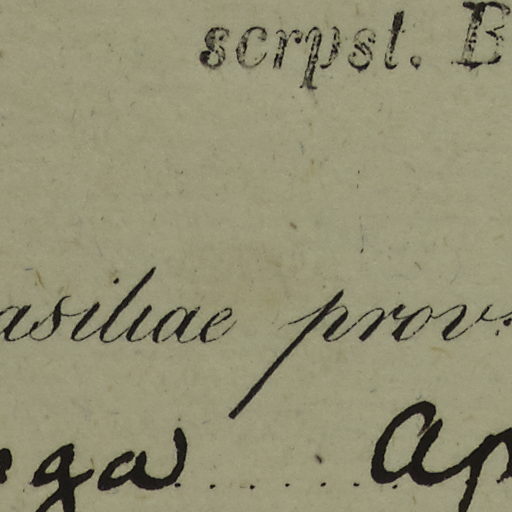 scrpst. B
asiliae prov.
ga Ap